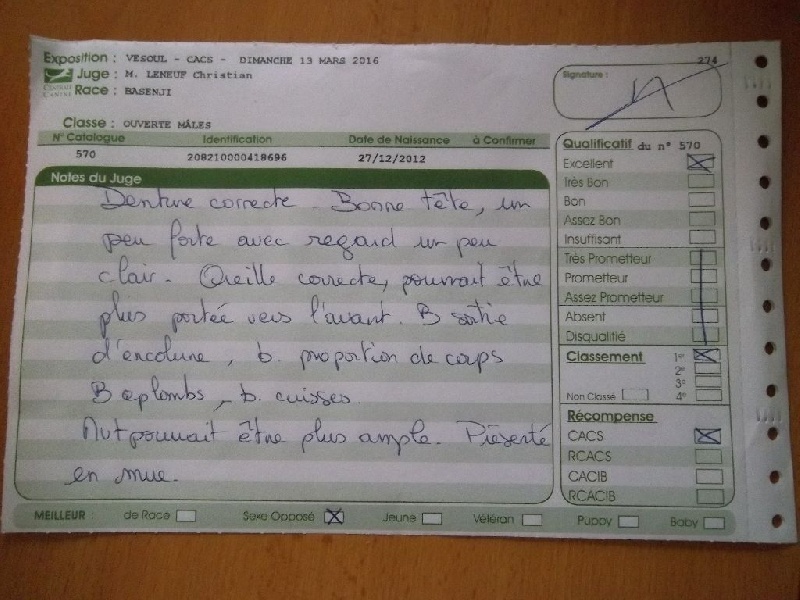 Exposition : VESOUL - CACS - DIMANCHE 13 MARS 2016
274
Juge : M. LENEUF Christian
Race : BASENJI
Signature :
Classe : OUVERTE MÂLES
N° Catalogue Identification Date de Naissance à Confirmer
570 208210000418696 27/12/2012
Notes du Juge
Denture correcte. Bonne tête, un
peu forte avec regard un peu
clair. Oreille correcte, pourrait être
plus portée vers l'avant. B sortie
d'encolure, b. proportion de corps
B aplombs, b. cuisses.
Mvt pourrait être plus ample. Présenté
en mue.
Qualificatif du n° 570
Excellent
Très Bon
Bon
Assez Bon
Insuffisant
Très Prometteur
Prometteur
Assez Prometteur
Absent
Disqualifié
Classement 1er
2e
3e
Non Classé 4e
Récompense
CACS
RCACS
CACIB
RCACIB
MEILLEUR : de Race Sexe Opposé Jeune Vétéran Puppy Baby